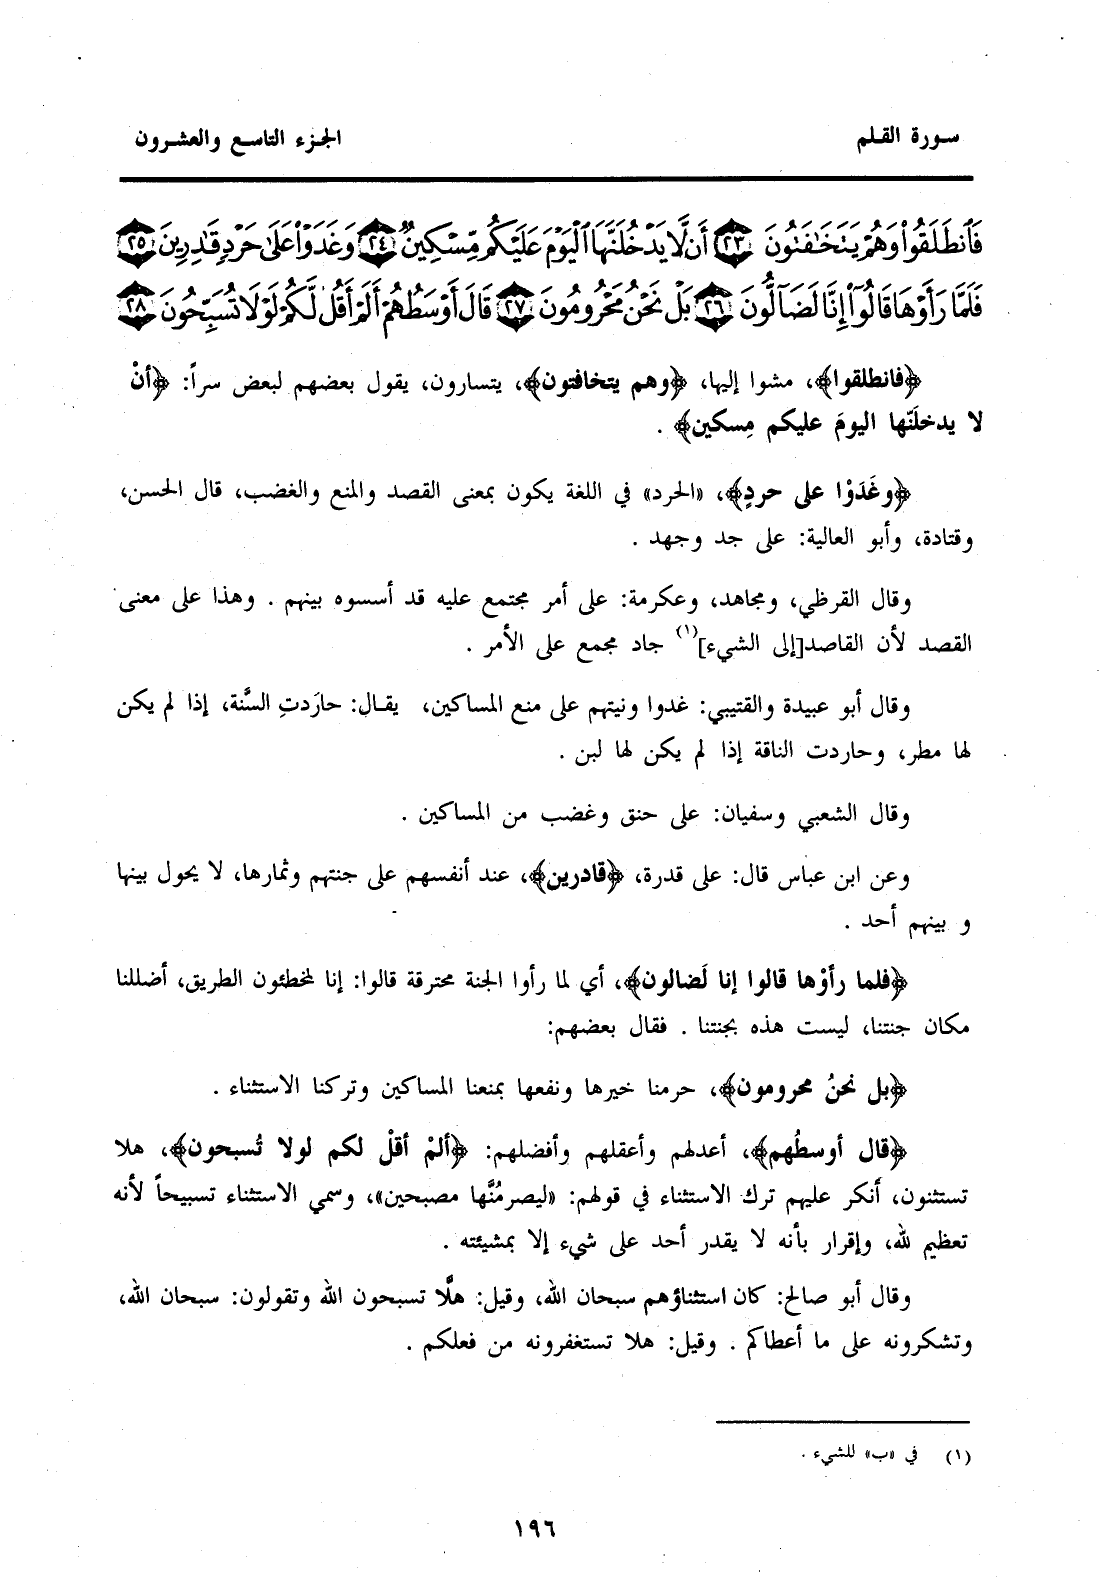 سورة القلم
الجزء التاسع والعشرون
فَٱنطَلَقُوا۟ وَهُمْ يَتَخَـٰفَتُونَ ﴿٢٣﴾ أَن لَّا يَدْخُلَنَّهَا ٱلْيَوْمَ عَلَيْكُم مِّسْكِينٌ ﴿٢٤﴾ وَغَدَوْا۟ عَلَىٰ حَرْدٍ قَـٰدِرِينَ ﴿٢٥﴾
فَلَمَّا رَأَوْهَا قَالُوٓا۟ إِنَّا لَضَآلُّونَ ﴿٢٦﴾ بَلْ نَحْنُ مَحْرُومُونَ ﴿٢٧﴾ قَالَ أَوْسَطُهُمْ أَلَمْ أَقُل لَّكُمْ لَوْلَا تُسَبِّحُونَ ﴿٢٨﴾
﴿فانطلقوا﴾، مشوا إليها، ﴿وهم يتخافتون﴾، يتسارون، يقول بعضهم لبعض سراً: ﴿أنْ
لا يدخلَنّها اليومَ عليكم مِسكين﴾ .
﴿وغَدَوْا على حردٍ﴾، «الحرد» في اللغة يكون بمعنى القصد والمنع والغضب، قال الحسن،
وقتادة، وأبو العالية: على جد وجهد .
وقال القرظي، ومجاهد، وعكرمة: على أمر مجتمع عليه قد أسسوه بينهم . وهذا على معنى
القصد لأن القاصد[إلى الشيء](١) جاد مجمع على الأمر .
وقال أبو عبيدة والقتيبي: غدوا ونيتهم على منع المساكين، يقـال: حارَدتِ السَّنة، إذا لم يكن
لها مطر، وحاردت الناقة إذا لم يكن لها لبن .
وقال الشعبي وسفيان: على حنق وغضب من المساكين .
وعن ابن عباس قال: على قدرة، ﴿قادرين﴾، عند أنفسهم على جنتهم وثمارها، لا يحول بينها
و بينهم أحد .
﴿فلما رأوْها قالوا إنا لَضالون﴾، أي لما رأوا الجنة محترقة قالوا: إنا لمخطئون الطريق، أضللنا
مكان جنتنا، ليست هذه بجنتنا . فقال بعضهم:
﴿بل نحنُ محرومون﴾، حرمنا خيرها ونفعها بمنعنا المساكين وتركنا الاستثناء .
﴿قال أوسطُهم﴾، أعدلهم وأعقلهم وأفضلهم: ﴿ألمْ أقلْ لكم لولا تُسبحون﴾، هلا
تستثنون، أنكر عليهم ترك الاستثناء في قولهم: «ليصرمُنَّها مصبحين»، وسمي الاستثناء تسبيحاً لأنه
تعظيم لله، وإقرار بأنه لا يقدر أحد على شيء إلا بمشيئته .
وقال أبو صالح: كان استثناؤهم سبحان الله، وقيل: هلَّا تسبحون الله وتقولون: سبحان الله،
وتشكرونه على ما أعطاكم . وقيل: هلا تستغفرونه من فعلكم .
(١) في «ب» للشيء .
١٩٦